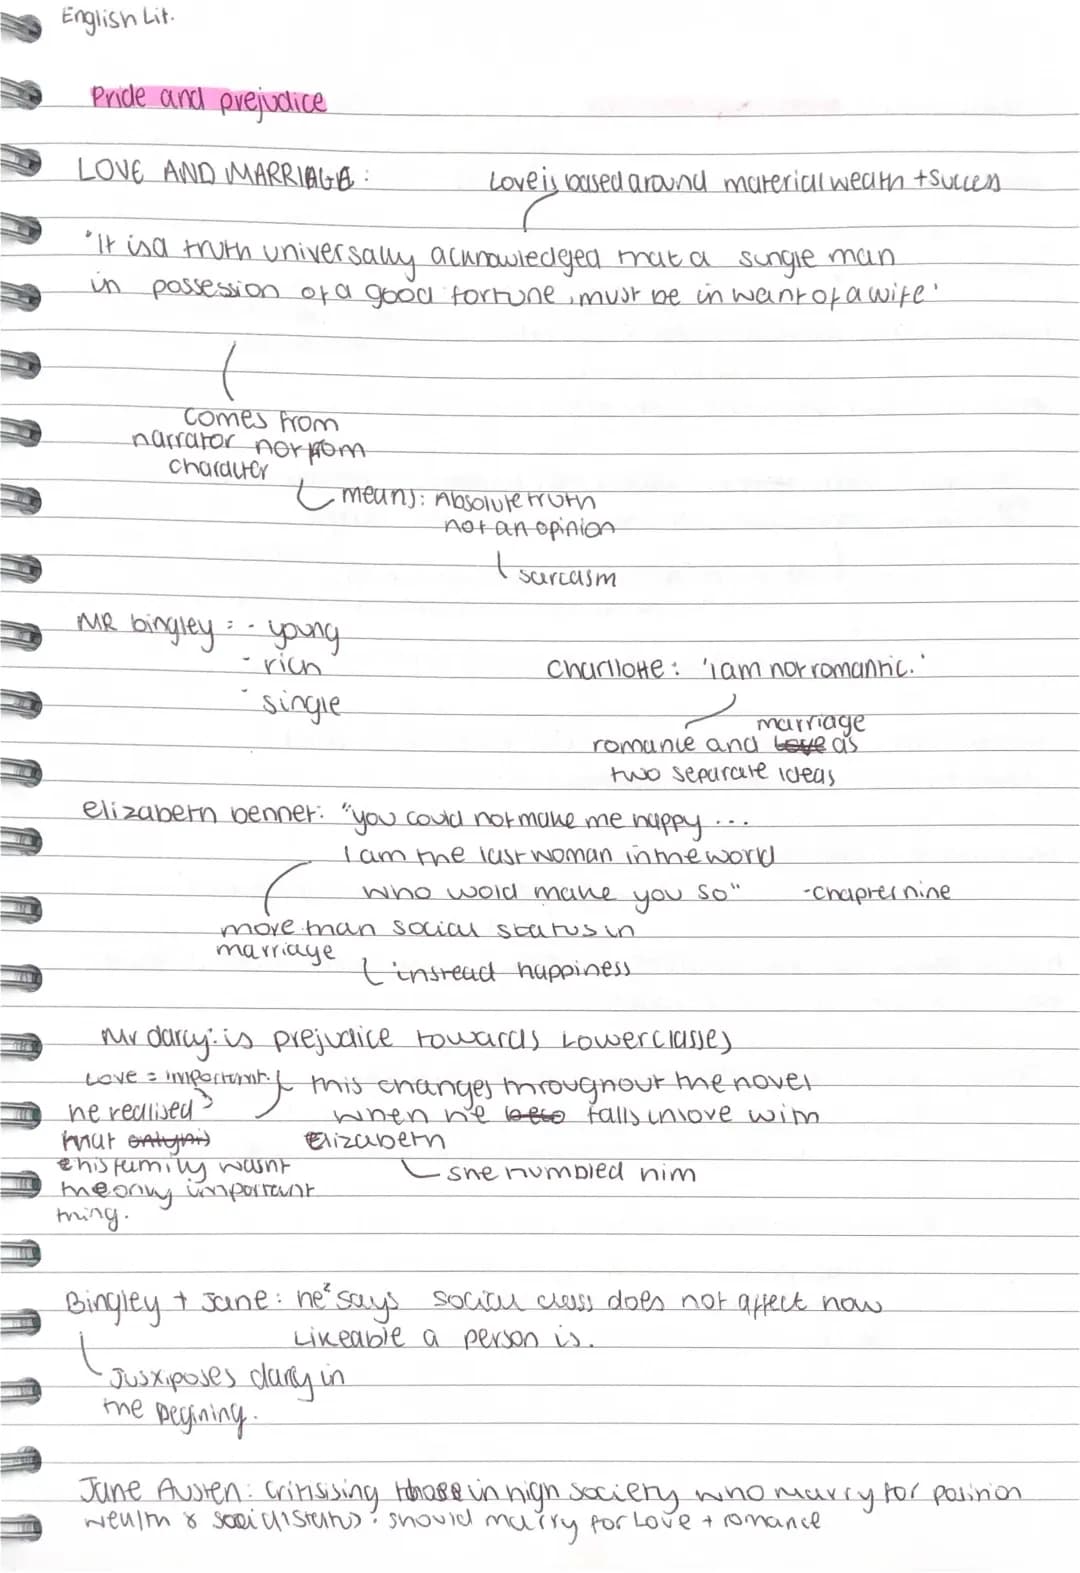 English Lit.
Pride and prejudice
LOVE AND MARRIAGE :
Love is based around material wealth + success
"It is a truth universally acknowledged that a single man
in possession of a good fortune, must be in want of a wife'
comes from
narrator not from
character
means: Absolute truth
not an opinion
sarcasm
MR bingley : - young
- rich
- single
Charllotte : 'i am not romantic.'
marriage
romance and Love as
two separate ideas
elizabeth bennet: "you could not make me happy ...
I am the last woman in the world
who wold make you so" - chapter nine
more than social status in
marriage
instead happiness
Mr darcy: is prejudice towards Lower classes
Love = important.
this changes throughout the novel
he realised
when he beco falls in love with
that only his
Elizabeth
his family wasnt
she humbled him
the only important
thing.
Bingley + Jane: he says social class does not affect how
Likeable a person is.
Jusxiposes darcy in
the begining.
Jane Austen: Critisising those in high society who marry for position
wealth & social status : should marry for Love + romance